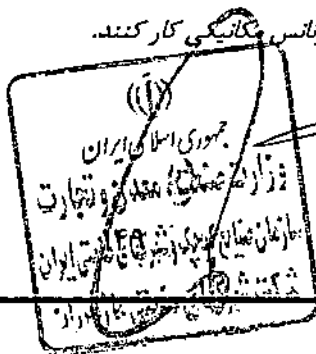 مکانیکی کار کنند.
((آ))
جمهوری اسلامی ایران
وزارت صنعت، معدن و تجارت
سازمان صنایع کوچک و شهرکهای صنعتی ایران
شرکت شهرکهای صنعتی